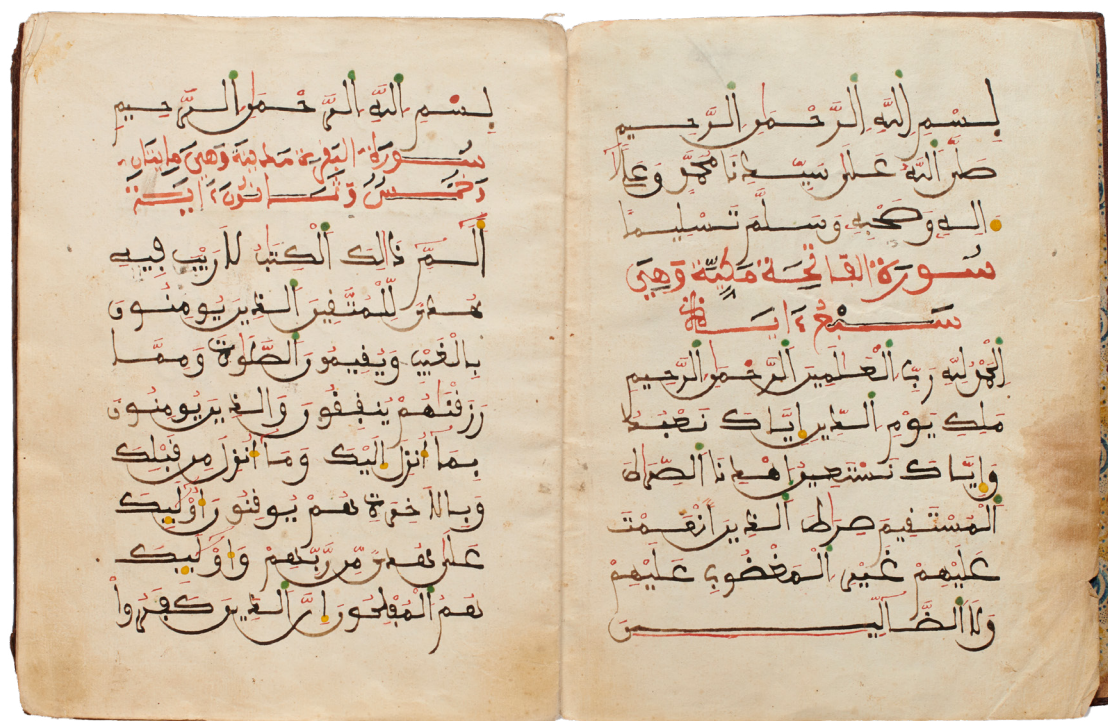 بِسْمِ اللَّهِ الرَّحْمَٰنِ الرَّحِيمِ
صَلَّى اللَّهُ عَلَى سَيِّدِنَا مُحَمَّدٍ وَعَلَى
ءَالِهِ وَصَحْبِهِ وَسَلَّمَ تَسْلِيمًا
سُورَةُ الفَاتِحَةِ مَكِّيَّةٌ وَهِيَ
سَبْعُ ءَايَاتٍ
الْحَمْدُ لِلَّهِ رَبِّ الْعَٰلَمِينَ الرَّحْمَٰنِ الرَّحِيمِ
مَلِكِ يَوْمِ الدِّينِ إِيَّاكَ نَعْبُدُ
وَإِيَّاكَ نَسْتَعِينُ اهْدِنَا الصِّرَٰطَ
الْمُسْتَقِيمَ صِرَٰطَ الَّذِينَ أَنْعَمْتَ
عَلَيْهِمْ غَيْرِ الْمَغْضُوبِ عَلَيْهِمْ
وَلَا الضَّالِّينَ
بِسْمِ اللَّهِ الرَّحْمَٰنِ الرَّحِيمِ
سُورَةُ البَقَرَةِ مَدَنِيَّةٌ وَهِيَ مِايَتَانِ
وَخَمْسٌ وَثَمَانُونَ ءَايَةً
الٓمٓ ذَٰلِكَ الْكِتَٰبُ لَا رَيْبَ فِيهِ
هُدًى لِّلْمُتَّقِينَ الَّذِينَ يُومِنُونَ
بِالْغَيْبِ وَيُقِيمُونَ الصَّلَوٰةَ وَمِمَّا
رَزَقْنَٰهُمْ يُنفِقُونَ وَالَّذِينَ يُومِنُونَ
بِمَا أُنزِلَ إِلَيْكَ وَمَا أُنزِلَ مِن قَبْلِكَ
وَبِالَاخِرَةِ هُمْ يُوقِنُونَ أُوْلَٰئِكَ
عَلَىٰ هُدًى مِّن رَّبِّهِمْ وَأُوْلَٰئِكَ
هُمُ الْمُفْلِحُونَ إِنَّ الَّذِينَ كَفَرُوا